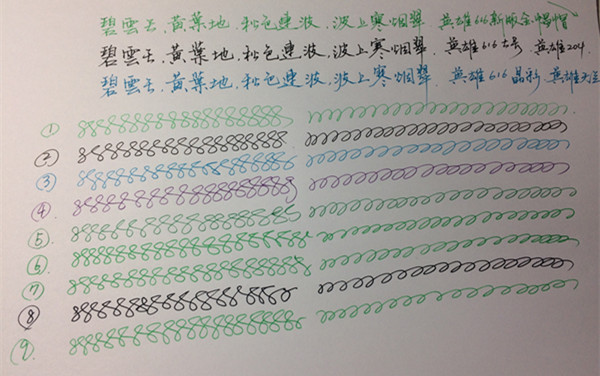 碧雲天,黃葉地,秋色連波,波上寒烟翠. 英雄616新版金
碧雲天,黃葉地,秋色連波,波上寒烟翠. 英雄616大号 英雄
碧雲天,黃葉地,秋色連波,波上寒烟翠. 英雄616晶彩 英雄
①
②
③
④
⑤
⑥
⑦
⑧
⑨